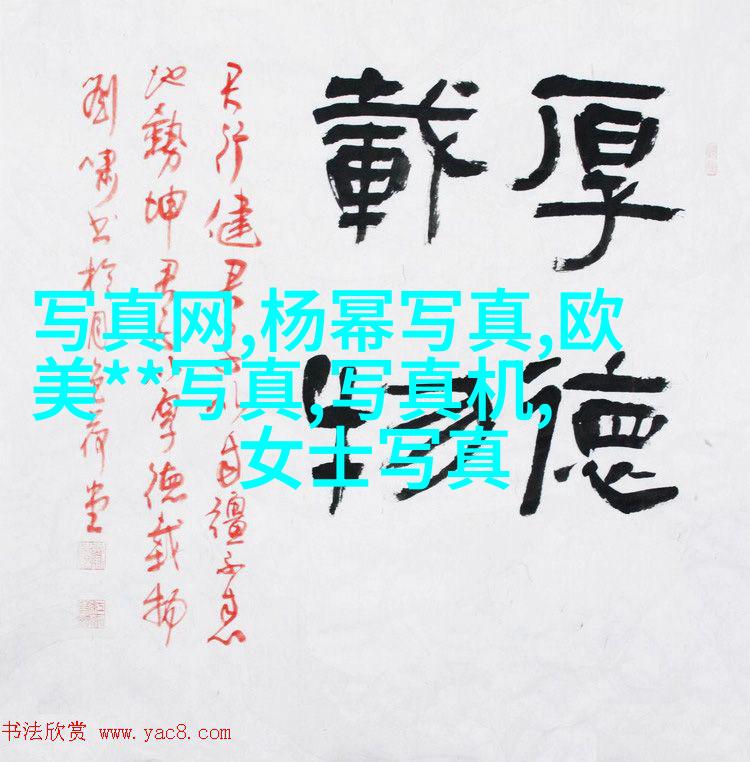 厚德
載物
天行健君子以自彊不息
地勢坤君子以厚德載物
劉嘯书於月色荷堂
写真网,杨幂写真,欧
美**写真,写真机,
女士写真
书法欣赏 www.yac8.com